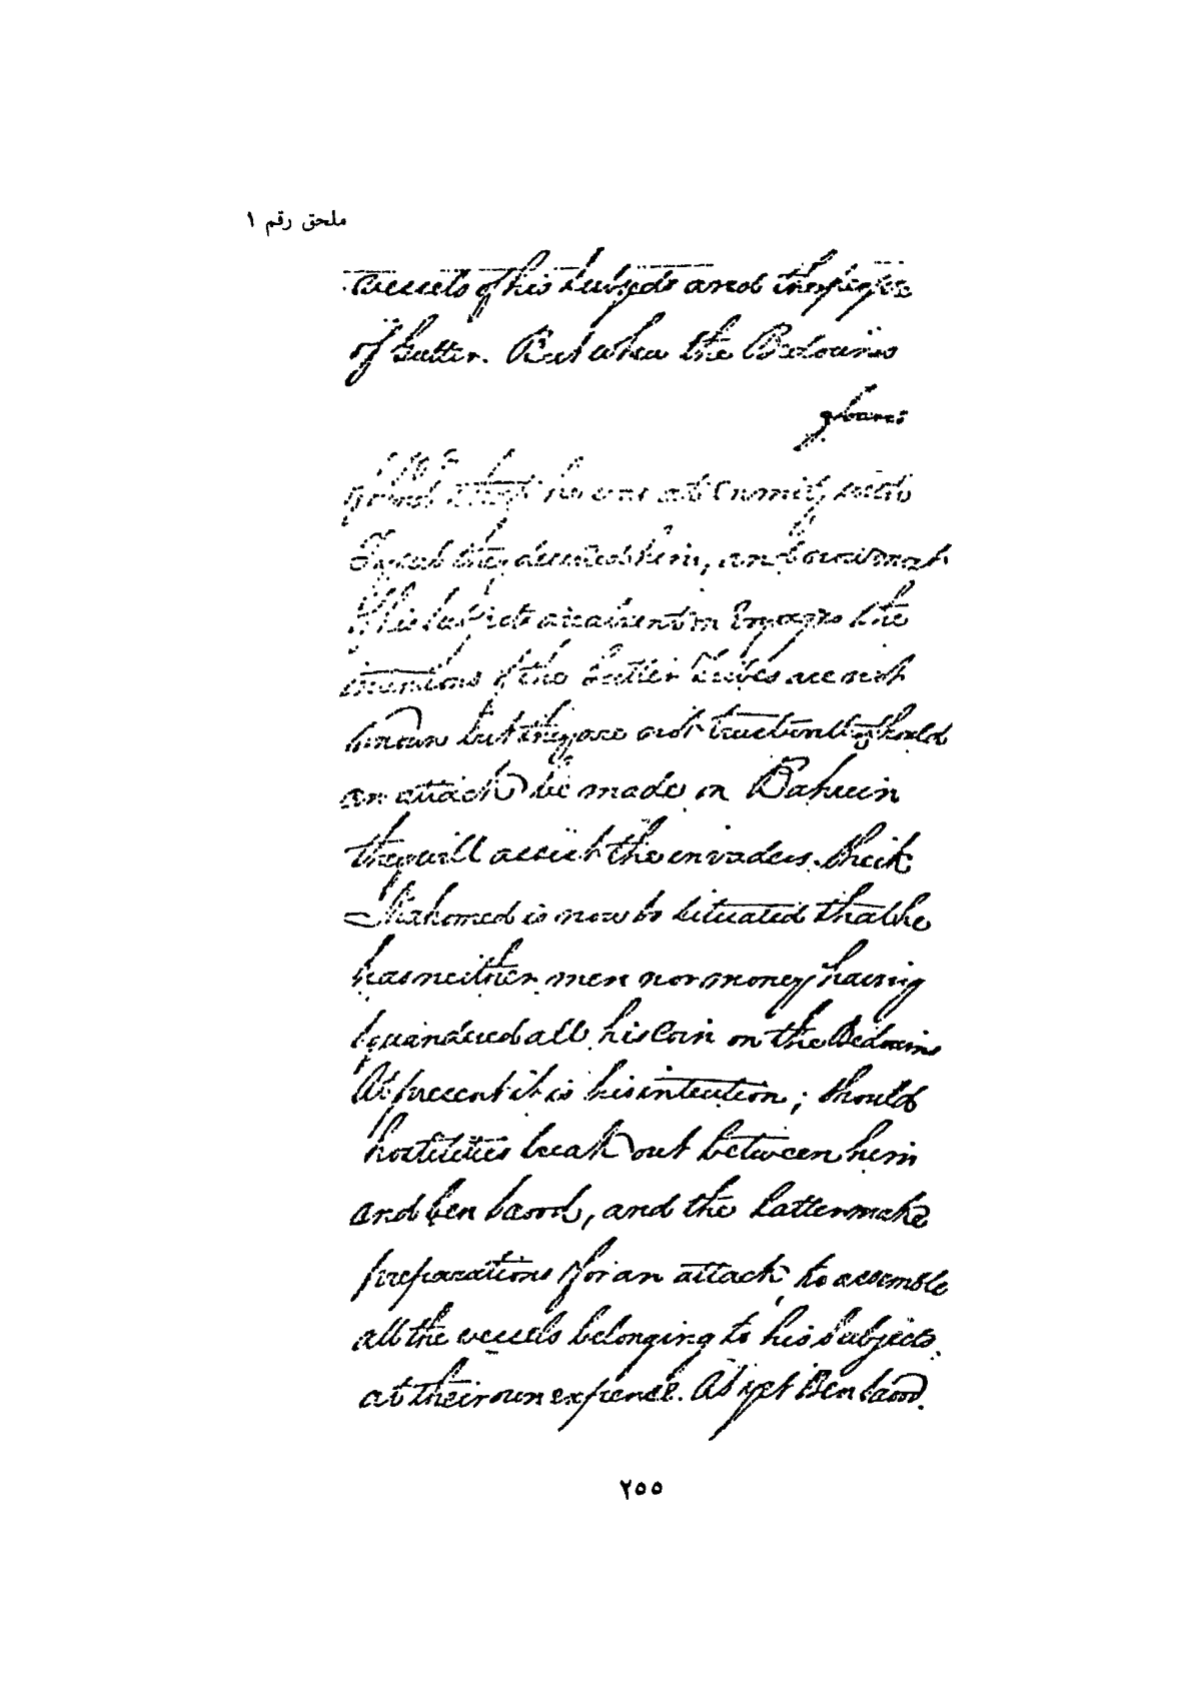 ملحق رقم ١
vessels of his subjects and the people
of Gutter. But when the Bedouins
found that he was at enmity with
they deserted him, and
his subjects are absent on Voyages the
intentions of the Gutter Tribes are not
known but they are not trustworthy should
an attack be made on Bahrein
they will assist the invaders. Sheik
Mahomed is now so situated that he
has neither men nor money having
squandered all his Coin on the Bedouins
At present it is his intention; should
hostilities break out between him
and ben Saood, and the latter make
preparations for an attack, to assemble
all the vessels belonging to his subjects
at their own expense. As yet Ben Saood.
٢٥٥